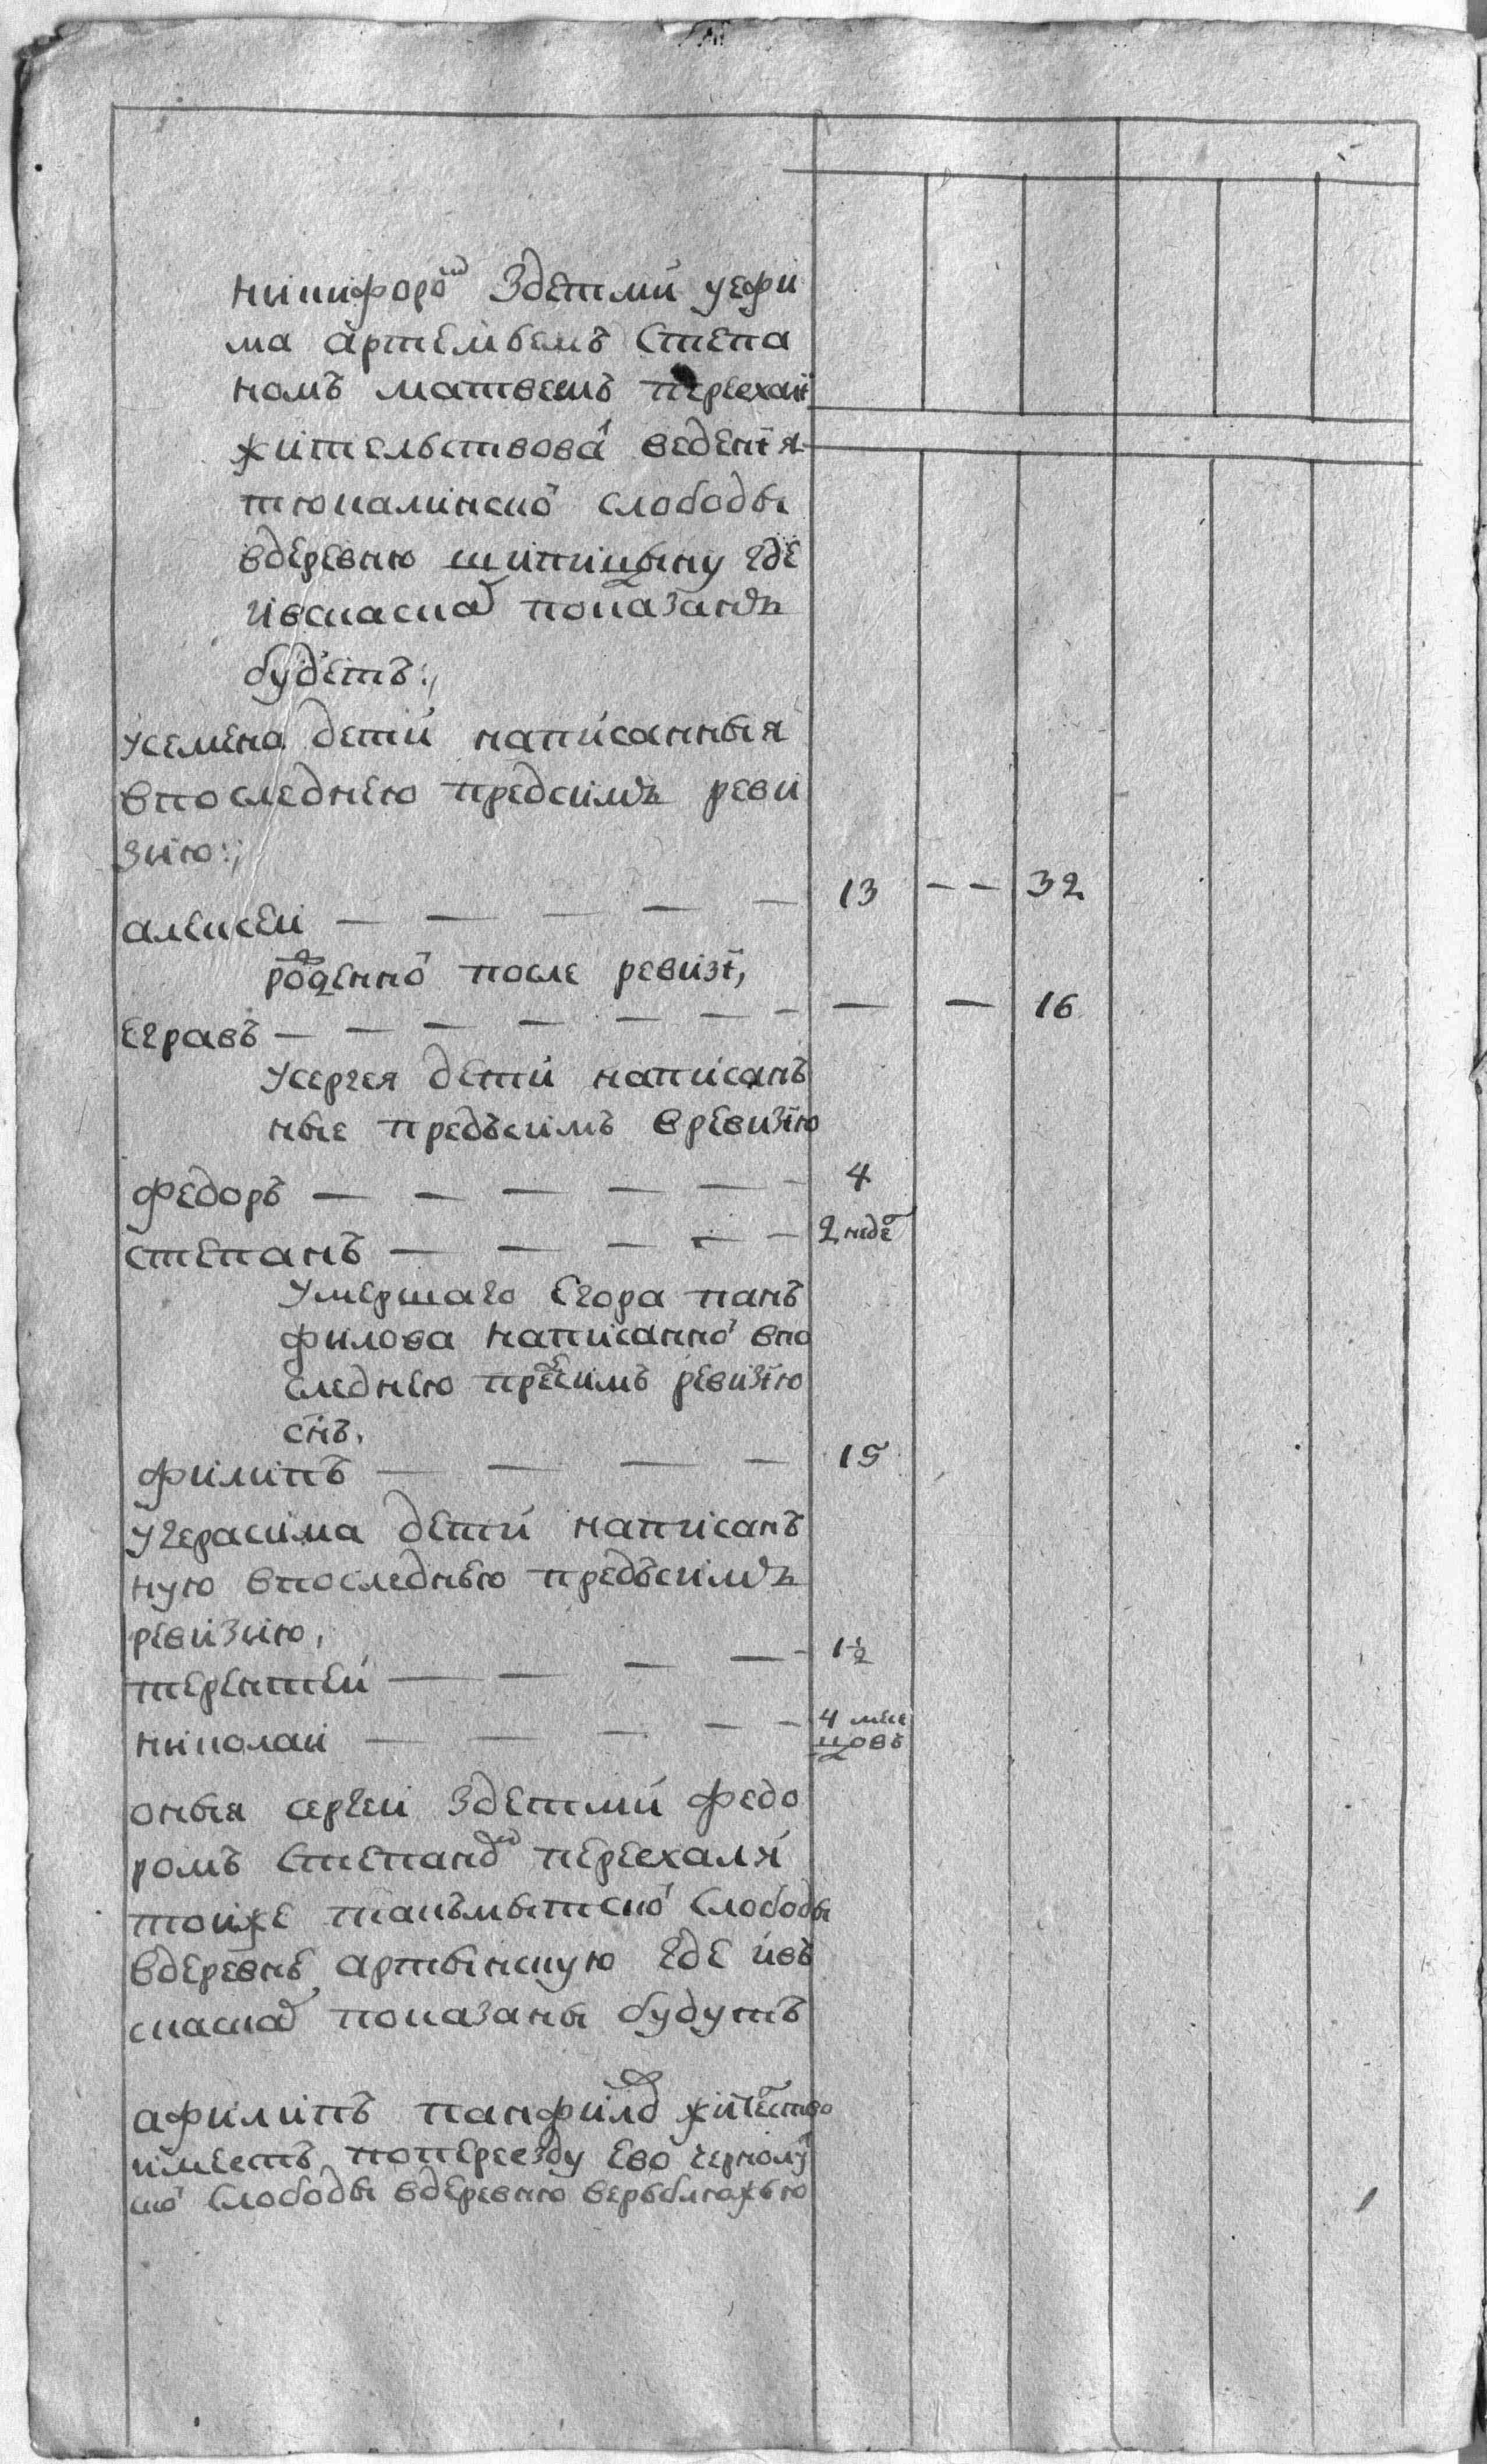 никифоромъ здетми уефи
ма артемьемъ степа
номъ матвеемъ переехали
жителствова ведения
тюкалинской слободы
вдеревню шипицыну где
ивсказкѣ показанъ
будетъ:,
уСемена детей написанныя
впоследнею предсимъ реви
зию:,
алексей — — — — — 13 — — 32
рожденной после ревизї,
еграѳъ — — — — — — — — — 16
усергея детей написанъ
ные предъсимъ времизїю
федоръ — — — — — — 4
степанъ — — — — — 2 неде
умершаго егора панъ
филова написанной впо
следнею предсимъ ревизїю
снъ,
филипъ — — — — 15
угерасима детей написанъ
ную впоследнею предъсимъ
ревизию,
терентей — — — — 1½
николай — — — — — 4 меся
цовъ
оныя сергей здетми федо
ромъ степаномъ переехали
тойже такъмытской слободы
вдеревнѣ артынскую где ивъ
сказкѣ показаны будутъ
афилипъ панфиловъ жителство
имеетъ попереезду ево чернолу
цкой слободы вдеревню верблюжью